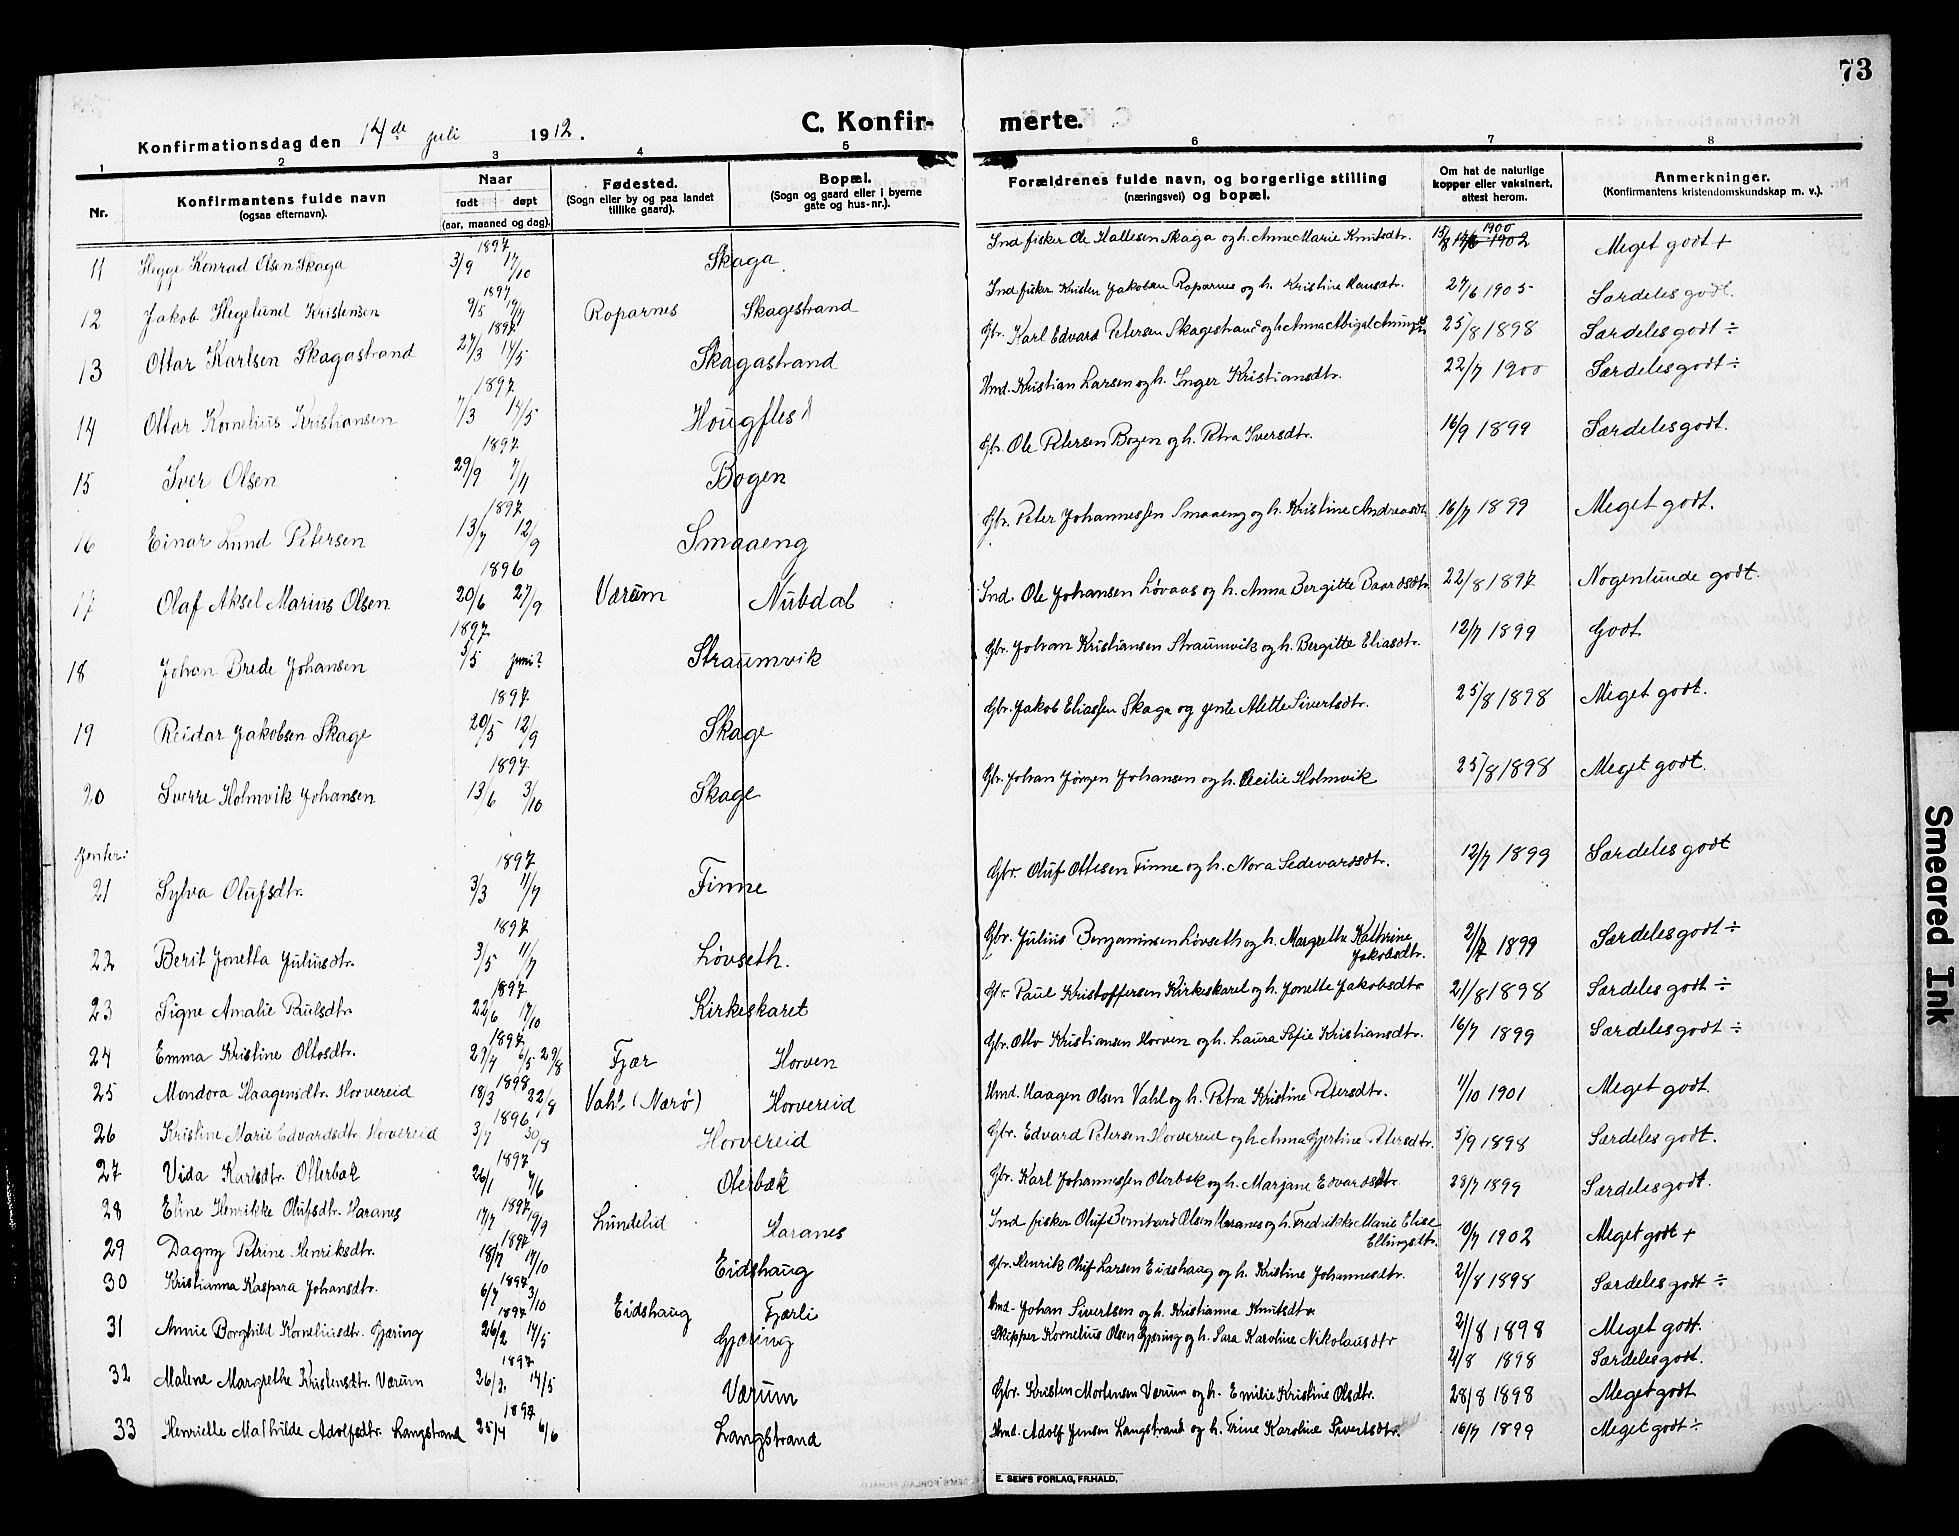 73
Konfirmationsdag den 14de juli 1912.
C. Konfir- merte.
1 2 3 4 5 6 7 8
Nr.
Konfirmantens fulde navn
(ogsaa efternavn).
Naar
født døpt
(aar, maaned og dag).
Fødested.
(Sogn eller by og paa landet
tillike gaard).
Bopæl.
(Sogn og gaard eller i byerne
gate og hus-nr.).
Forældrenes fulde navn, og borgerlige stilling
(næringsvei) og bopæl.
Om hat de naturlige
kopper eller vaksinert,
attest herom.
Anmerkninger.
(Konfirmantens kristendomskundskap m. v.).
11 Hegge Konrad Olsen Skaga 1897 3/9 17/10 Skaga Ind fisker Ole Hallesen Skaga og h. Anne Marie Knutsdtr. 15/8 1900 1902 Meget godt +
12 Jakob Hegelund Kristensen 1897 9/5 19/7 Roparnes Skagestrand Ind fisker Kristen Jakobsen Roparnes og h. Kristine Hansdtr. 27/6 1905 Særdeles godt.
13 Ottar Karlsen Skagastrand 1897 27/3 14/5 Skagastrand Gbr. Karl Edvard Petersen Skagestrand og h. Anna Abigal 25/8 1898 Særdeles godt ÷
14 Ottar Kornelius Kristiansen 1897 7/3 14/5 Hougfles Hmd. Kristian Larsen og h. Inger Kristiansdtr. 22/7 1900 Særdeles godt ÷
15 Iver Olsen 1897 29/9 7/4 Bogen Gbr. Ole Petersen Bogen og h. Petra Iversdtr. 16/9 1899 Særdeles godt.
16 Einar Lund Petersen 1897 13/7 12/9 Smaaeng Gbr. Peter Johannessen Smaaeng og h. Kristine Andreasdt. 16/7 1899 Meget godt.
17 Olaf Aksel Marius Olsen 1896 20/6 27/9 Værum Nubdal Ind. Ole Johansen Løvaas og h. Anna Bergitte Baardsdtr. 22/8 1897 Nogenlunde godt.
18 Johan Brede Johansen 1897 5/5 juni? Straumvik Gbr. Johan Kristiansen Straumvik og h. Bergitte Eliasdtr. 12/7 1899 Godt
19 Reidar Jakobsen Skage 1897 20/5 12/9 Skage Gbr. Jakob Eliassen Skaga og gente Alette Sivertsdtr. 25/8 1898 Meget godt.
20 Sverre Holmvik Johansen 1897 13/6 3/10 Skage Gbr. Johan Jørgen Johansen og h. Cecilie Holmvik 25/8 1898 Meget godt.
Jenter:
21 Sylva Olufsdtr. 1897 3/3 11/7 Finne Gbr. Oluf Ottesen Finne og h. Nora Sedevardsdtr. 12/7 1899 Særdeles godt
22 Berit Jonetta Juliusdtr. 1897 3/5 11/7 Løvseth. Gbr. Julius Benjaminsen Løvseth og h. Margrethe Kathrine Jakobsdtr. 21/7 1899 Særdeles godt ÷
23 Signe Amalie Paulsdtr. 1897 22/6 17/10 Kirkeskaret Gbr Paul Kristoffersen Kirkeskaret og h. Jonette Jakobsdtr 21/8 1898 Særdeles godt ÷
24 Emma Kristine Ottosdtr. 1897 27/4 6/5 29/8 Fjær Horven Gbr. Otto Kristiansen Horven og h. Laura Sofie Kristiansdtr. 16/7 1899 Særdeles godt ÷
25 Mondora Haagensdtr. Horvereid 1898 18/3 22/8 Vahl (Nærø) Horvereid Hmd. Haagen Olsen Vahl og h. Petra Kristine Petersdtr. 1/10 1901 Meget godt
26 Kristine Marie Edvardsdtr Horvereid 1896 3/7 30/8 Horvereid Gbr. Edvard Petersen Horvereid og h Anna Gjertine Petersdtr. 5/9 1898 Særdeles godt.
27 Vida Karlsdtr. Otterbak 1897 26/1 7/6 Oterbak Gbr. Karl Johannessen Oterbak og h. Marjane Edvardsdtr. 28/7 1899 Særdeles godt.
28 Eline Henrikke Olufsdtr. Haranes 1897 17/7 19/9 Lundelid Haranes Ind fisker Oluf Bernhard Olsen Haranes og h. Fredrikke Marie Elise Ellingsdtr. 10/7 1902 Meget godt +
29 Dagny Petrine Henriksdtr. 1897 18/7 17/10 Eidshaug Gbr. Henrik Oluf Larsen Eidshaag og h. Kristine Johannesdtr. 21/8 1898 Særdeles godt ÷
30 Kristianna Kaspara Johansdtr. 1897 6/7 3/10 Eidshaug Fjærli Hmd- Johan Sivertsen og h. Kristianna Knutsdtr 21/8 1898 Meget godt.
31 Annie Borghild Korneliusdtr. Gjæring 1897 26/2 14/5 Gjæring Skipper Kornelius Olsen Gjæring og h. Sara Karoline Nikolausdtr 21/8 1898 Særdeles godt.
32 Malene Margrethe Kristensdtr. Værum 1897 26/2 14/5 Værum Gbr. Kristen Mortensen Værum og h. Emilie Kristine Olsdtr. 28/8 1898 Meget godt
33 Henrielle Mathilde Adolfsdtr. Langstrand 1897 25/4 6/6 Langstrand Hmd. Adolf Jensen Langstrand og h. Trine Karoline Sivertsdtr. 16/7 1899 Meget godt ÷
E. SEM'S FORLAG, FR.HALD.
Smeared Ink